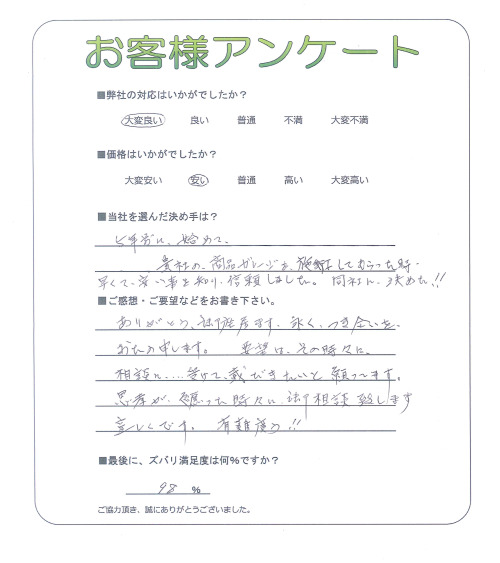 お客様アンケート
■弊社の対応はいかがでしたか？
大変良い 良い 普通 不満 大変不満
■価格はいかがでしたか？
大変安い 安い 普通 高い 大変高い
■当社を選んだ決め手は？
5年前に、始めて、
貴社の、商品ガレージを、施工してもらった時、
早くて、安い事を知り、信頼しました。同社に、決めた!!
■ご感想・ご要望などをお書き下さい。
ありがとう、御座居ます、永く、つき合いを、
お願い申します。 要望は、その時々に、
相談に…乗けて、戴だきたいと願ってます。
思考が、困った時々に、御相談致します
宜しくです。 有難度う!!
■最後に、ズバリ満足度は何%ですか？
98 %
ご協力頂き、誠にありがとうございました。